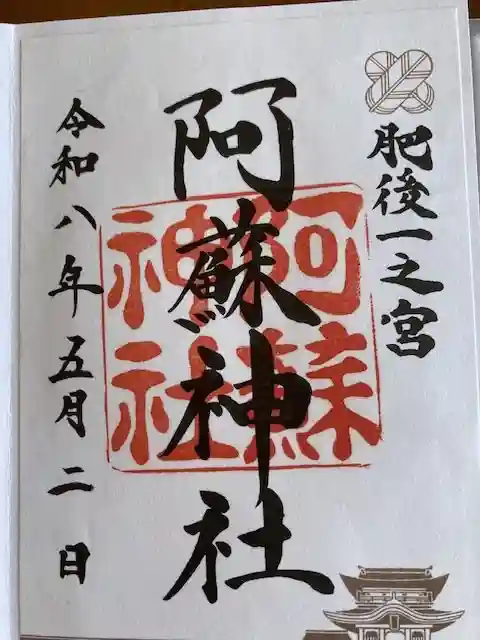 肥後一之宮
阿蘇神社
阿蘇神社
令和八年五月二日